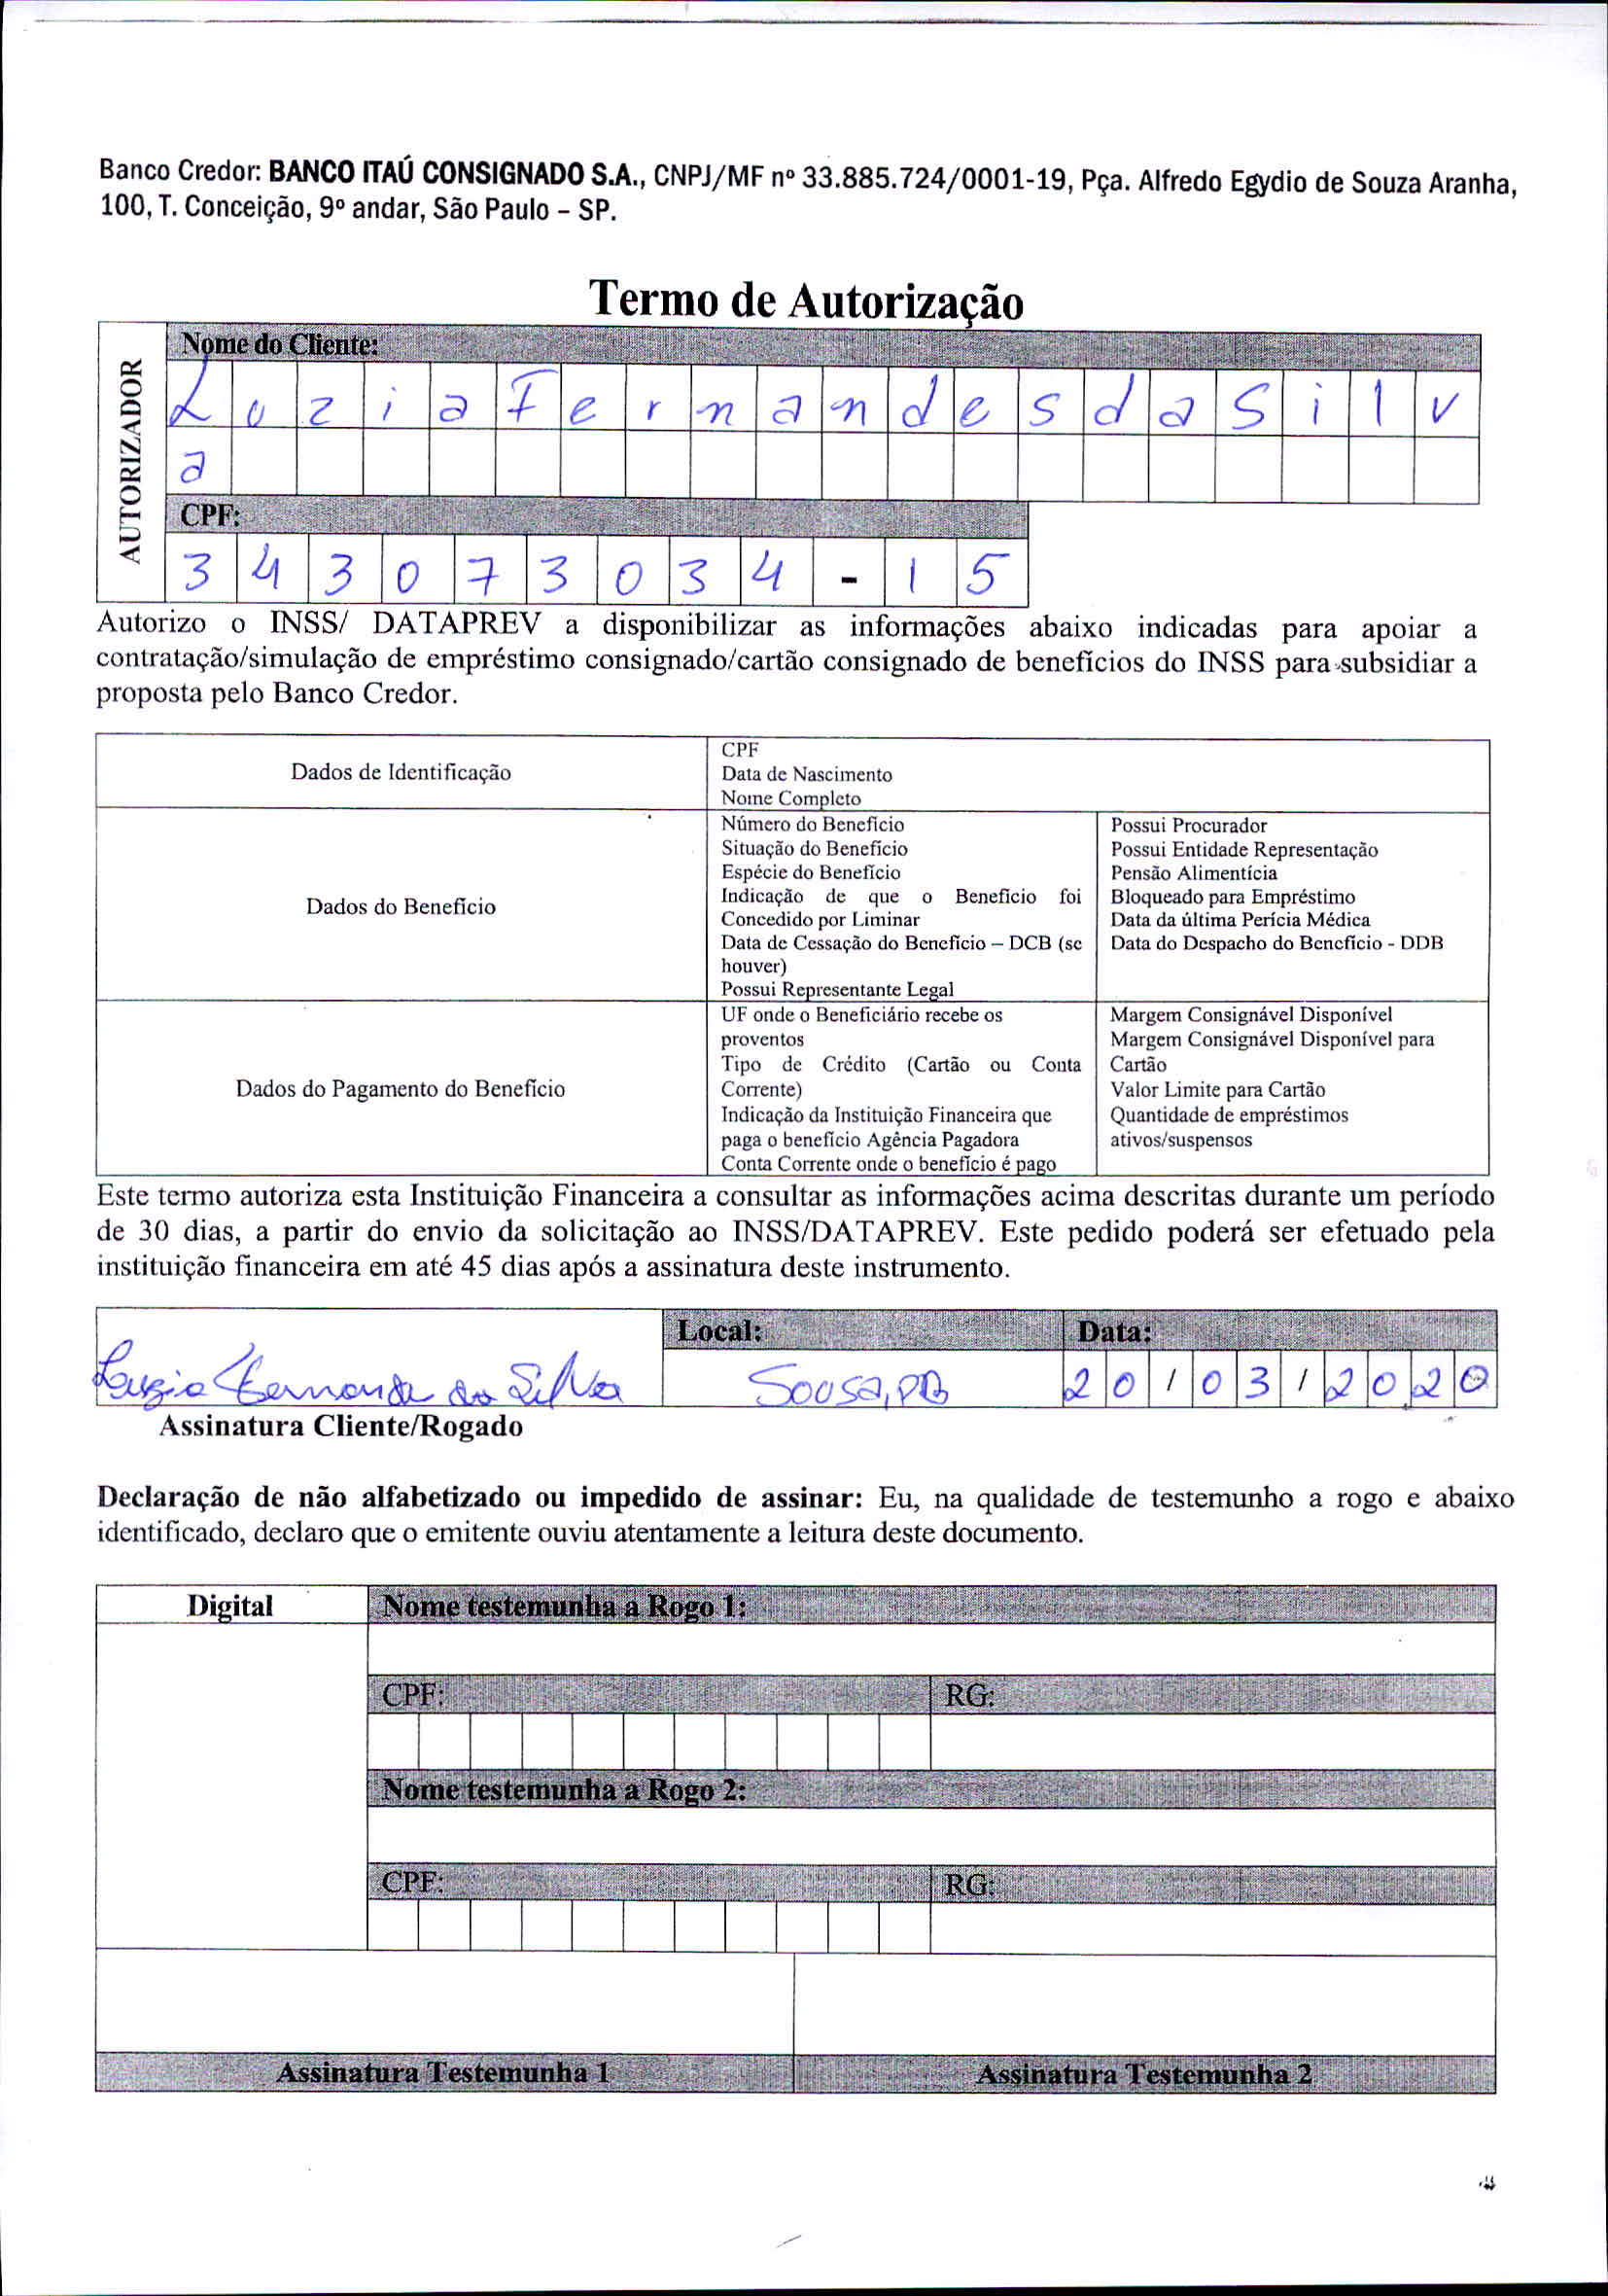 Banco Credor: BANCO ITAÚ CONSIGNADO S.A., CNPJ/MF nº 33.885.724/0001-19, Pça. Alfredo Egydio de Souza Aranha,
100, T. Conceição, 9º andar, São Paulo – SP.
Termo de Autorização
AUTORIZADOR
Nome do Cliente:
L u z i a F e r n a n d e s d a S i l v
a
CPF:
3 4 3 0 7 3 0 3 4 - 1 5
Autorizo o INSS/ DATAPREV a disponibilizar as informações abaixo indicadas para apoiar a
contratação/simulação de empréstimo consignado/cartão consignado de benefícios do INSS para subsidiar a
proposta pelo Banco Credor.
Dados de Identificação
CPF
Data de Nascimento
Nome Completo
Dados do Benefício
Número do Benefício
Situação do Benefício
Espécie do Benefício
Indicação de que o Benefício foi
Concedido por Liminar
Data de Cessação do Benefício – DCB (se
houver)
Possui Representante Legal
Possui Procurador
Possui Entidade Representação
Pensão Alimentícia
Bloqueado para Empréstimo
Data da última Perícia Médica
Data do Despacho do Benefício - DDB
Dados do Pagamento do Benefício
UF onde o Beneficiário recebe os
proventos
Tipo de Crédito (Cartão ou Conta
Corrente)
Indicação da Instituição Financeira que
paga o benefício Agência Pagadora
Conta Corrente onde o benefício é pago
Margem Consignável Disponível
Margem Consignável Disponível para
Cartão
Valor Limite para Cartão
Quantidade de empréstimos
ativos/suspensos
Este termo autoriza esta Instituição Financeira a consultar as informações acima descritas durante um período
de 30 dias, a partir do envio da solicitação ao INSS/DATAPREV. Este pedido poderá ser efetuado pela
instituição financeira em até 45 dias após a assinatura deste instrumento.
Local:
Data:
Luzia Fernande da Silva
Sousa, PB
2 0 / 0 3 / 2 0 2 0
Assinatura Cliente/Rogado
Declaração de não alfabetizado ou impedido de assinar: Eu, na qualidade de testemunho a rogo e abaixo
identificado, declaro que o emitente ouviu atentamente a leitura deste documento.
Digital
Nome testemunha a Rogo 1:
CPF:
RG:
Nome testemunha a Rogo 2:
CPF:
RG:
Assinatura Testemunha 1
Assinatura Testemunha 2